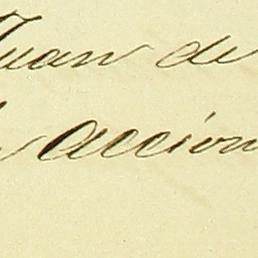 Juan de
accion